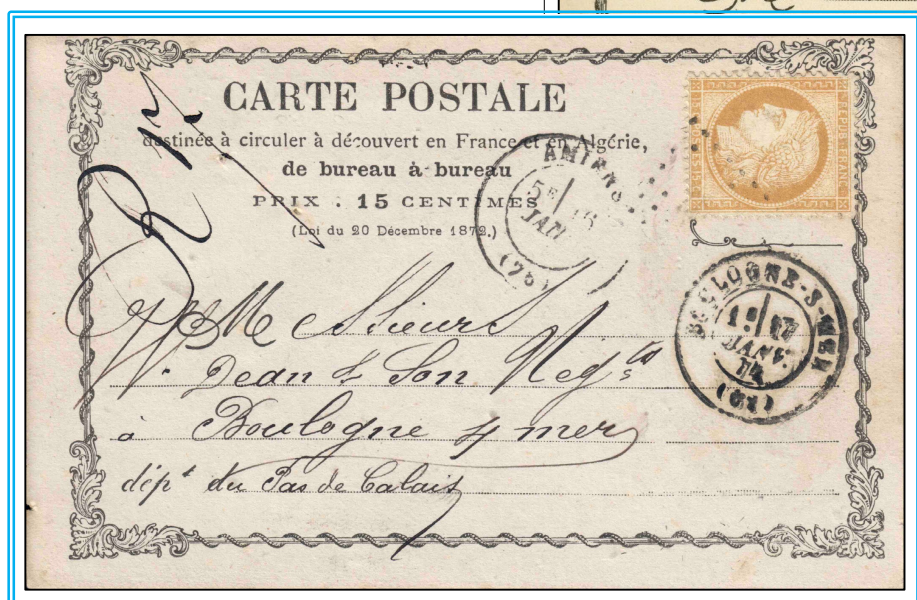 CARTE POSTALE
destinée à circuler à découvert en France et en Algérie,
de bureau à bureau
PRIX : 15 CENTIMES
(Loi du 20 Décembre 1872.)
REPUB. FRANC.
AMIENS
5E
16
JAN
(76)
BOULOGNE-S-MER
1E 17
JANV.
74
Messieurs
Dean & Son Negts
à Boulogne s/ mer
dépt du Pas de Calais